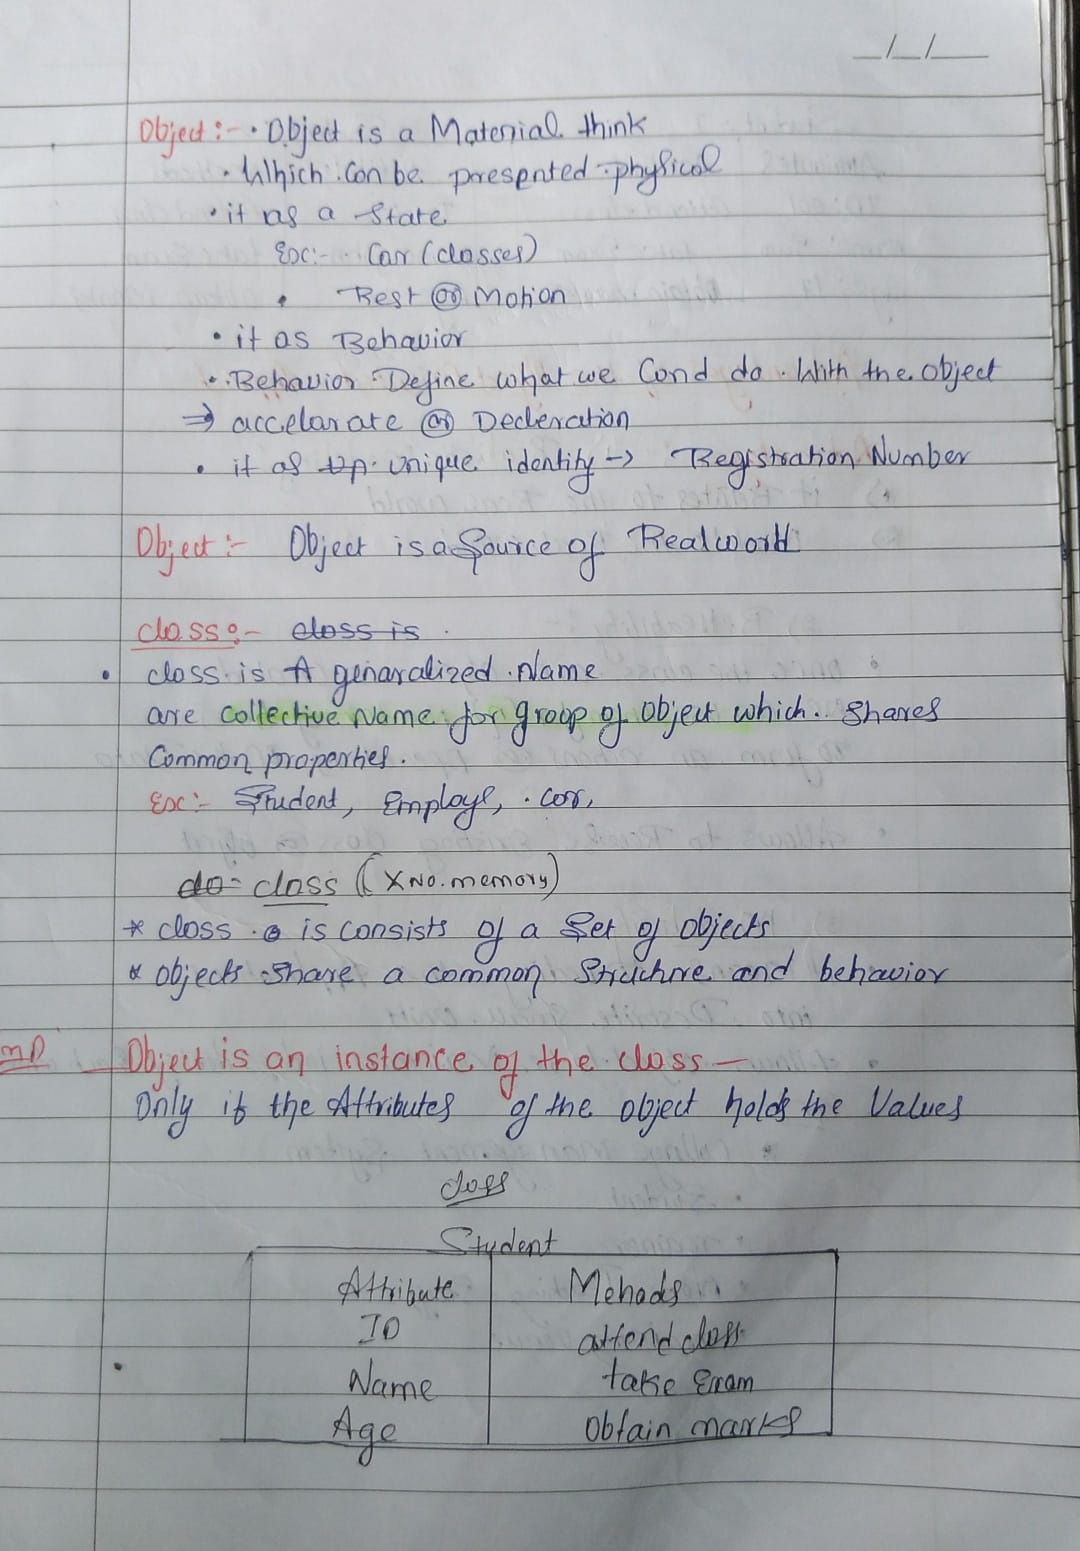 _/_/_
Object :- • Object is a Material think
• Which can be presented physical
• it as a State
Ex:- Car (classes)
• Rest or Motion
• it as Behavior
• Behavior Define what we Cond do With the object
⇒ accelarate or Decleration
• it as unique identity → Registration Number
Object :- Object is a Source of Realworld
class :- class is
• class is A genaralized Name
are collective Name for group of object which shares
Common properties.
Ex:- Student, Employe, car,
do- class (X No. memory)
* class is consists of a Set of objects
* objects share a common Structure and behavior
imp Object is an instance of the class —
Only if the Attributes of the object holds the Values
class
Student
Attribute Mehods
ID attend class
Name take Exam
Age Obtain marks